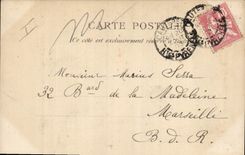 CARTE POSTALE
Ce côté est exclusivement réservé
Monsieur Marius Serra
32 Bard de la Madeleine
Marseille
B. d. R.